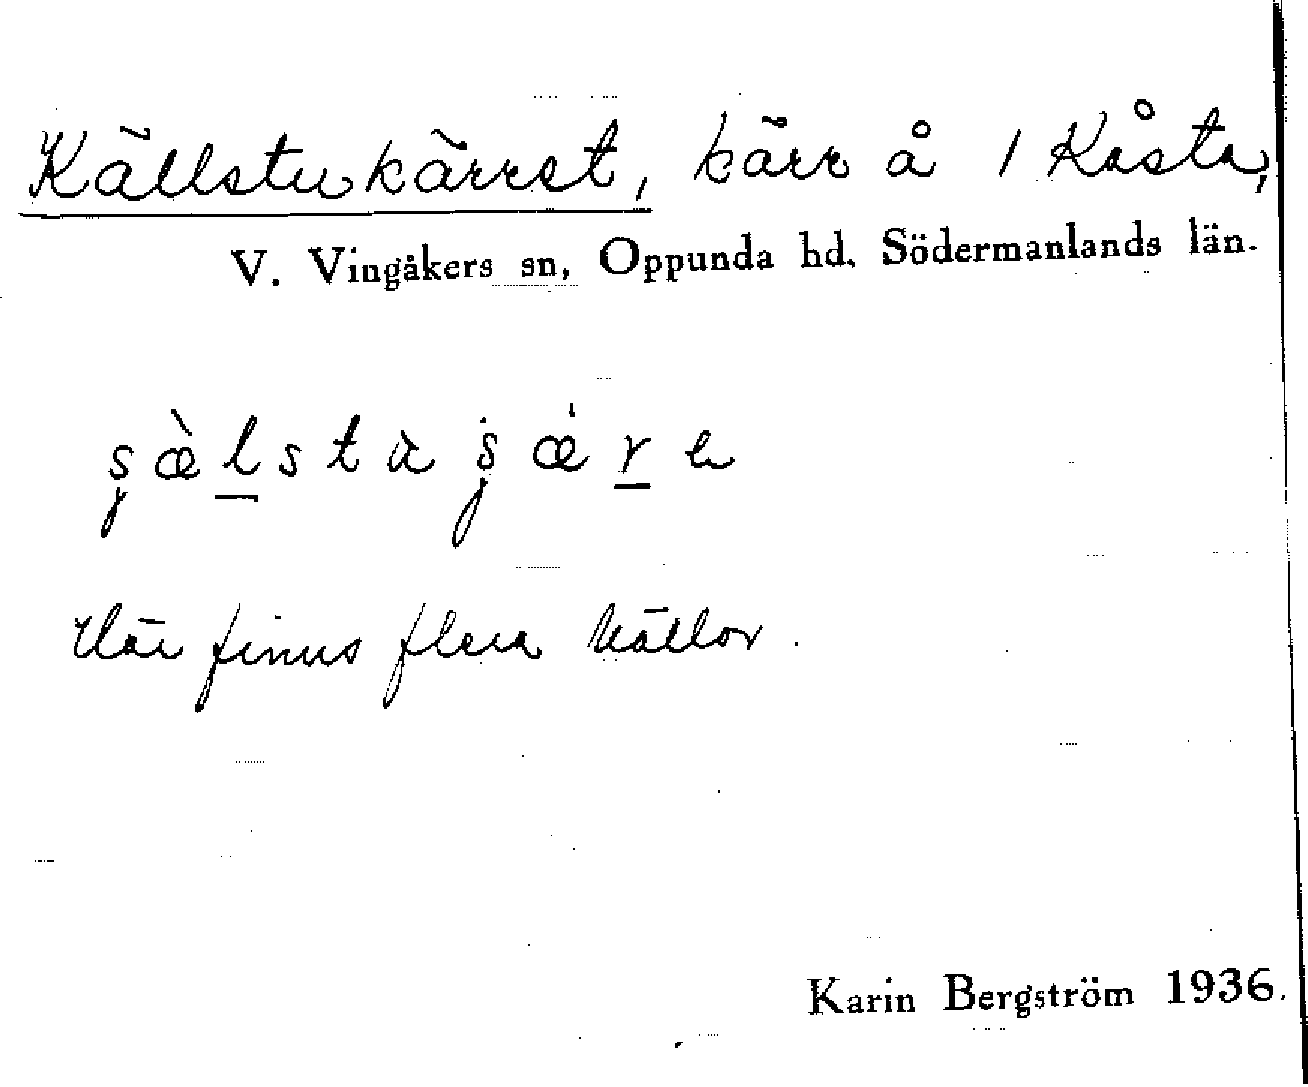 Källstukärret, kärr å 1 Kåsta,
V. Vingåkers sn, Oppunda hd. Södermanlands län.
Här finns flera källor.
Karin Bergström 1936.